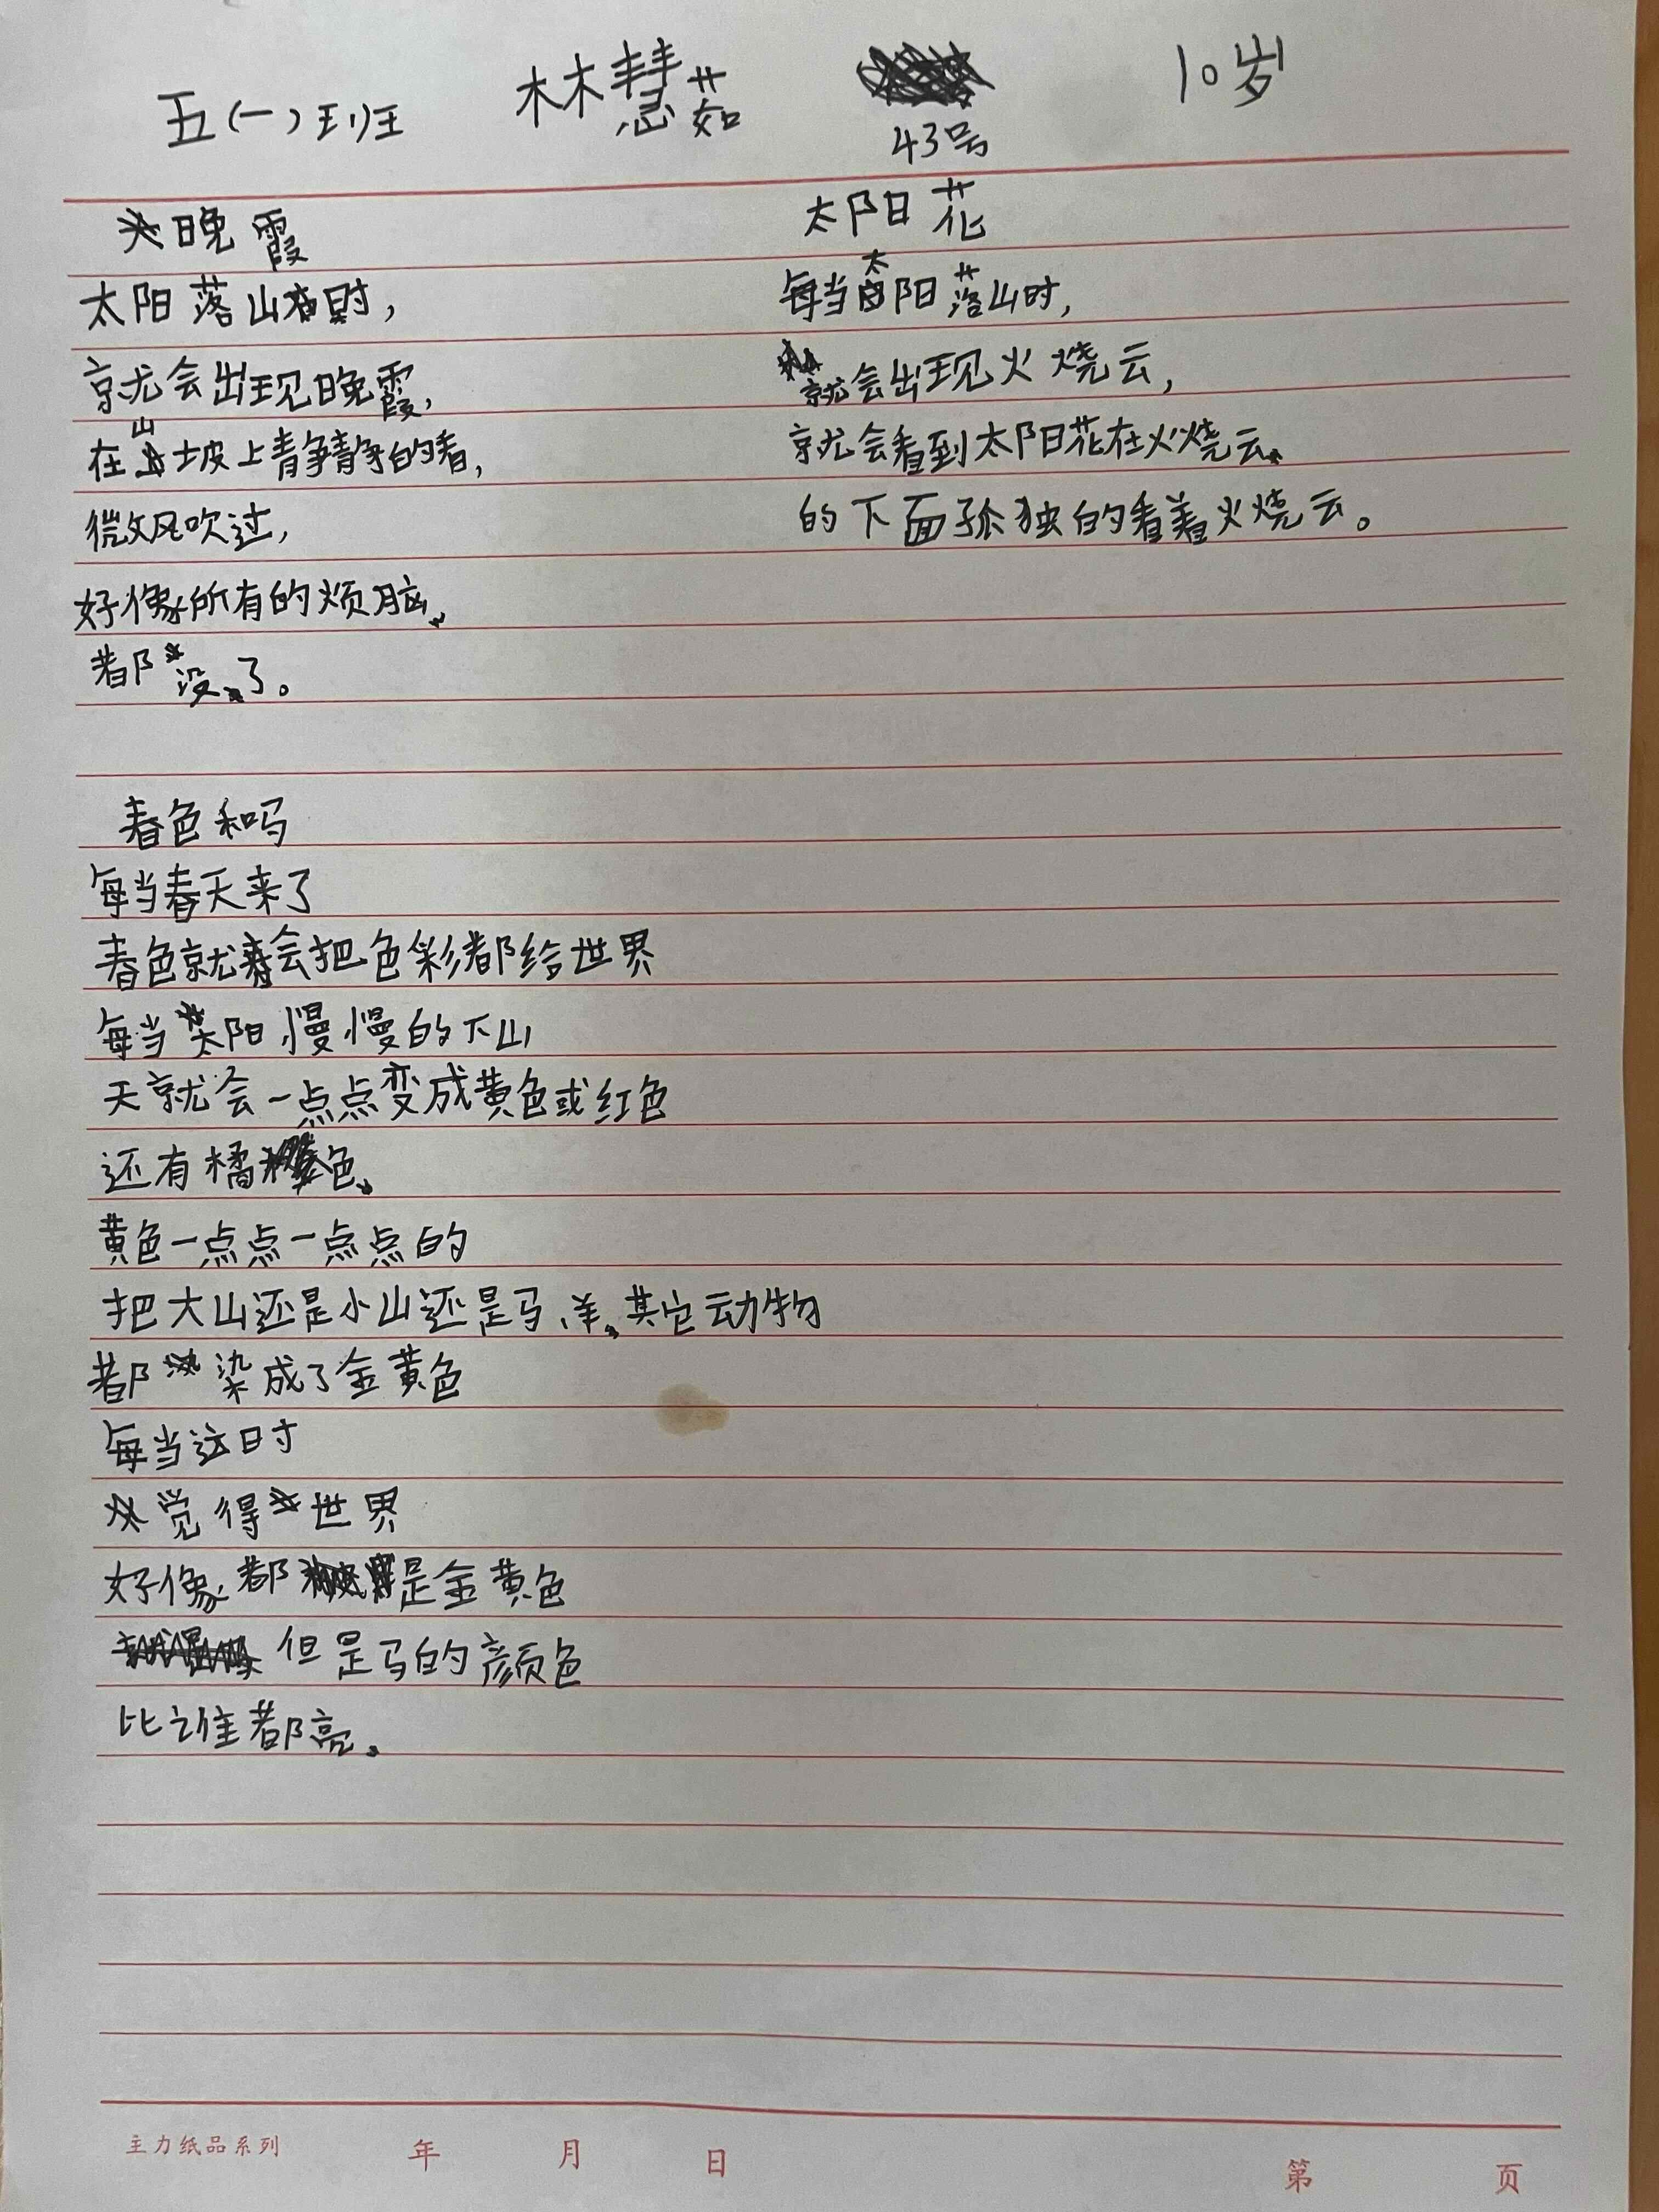 五(一)班 林慧茹 43号 10岁
晚霞
太阳落山时,
就会出现晚霞,
在山坡上静静的看,
微风吹过,
好像所有的烦脑
都没了。
太阳花
每当太阳落山时,
就会出现火烧云,
就会看到太阳花在火烧云
的下面孤独的看着火烧云。
春色和马
每当春天来了
春色就会把色彩都给世界
每当太阳慢慢的下山
天就会一点点变成黄色或红色
还有橘色
黄色一点点一点点的
把大山还是小山还是马、羊、其它动物
都染成了金黄色
每当这时
觉得世界
好像都是金黄色
但是马的颜色
比谁都亮。
主力纸品系列 年 月 日 第 页